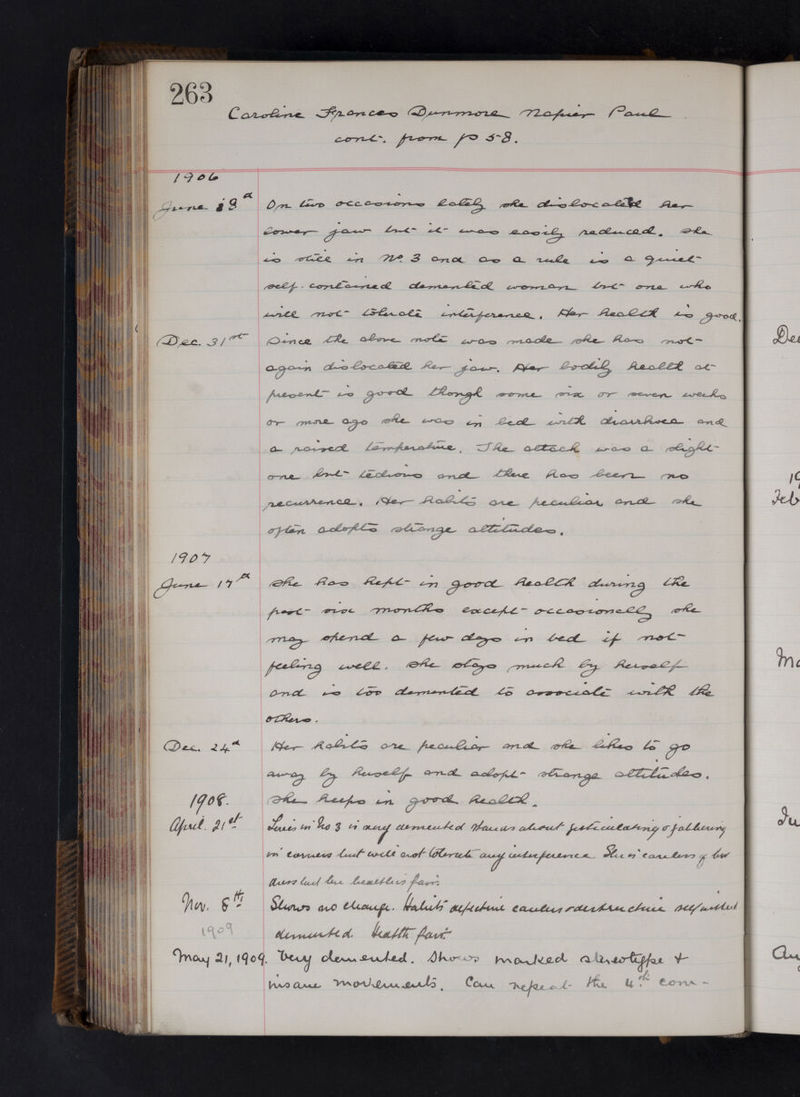 263
Caroline Frances Dunmore Napier Paul
cont. from p 58.
1906
June 13th On two occasions lately she dislocated her
lower jaw but it was easily reduced. She
is still in No. 3 and as a rule is a quiet
self-contained demented woman but one who
will not tolerate interference. Her health is good.
Dec. 31st Since the above note was made she has not
again dislocated her jaw. Her bodily health at
present is good though some six or seven weeks
or more ago she was in bed with diarrhoea and
a raised temperature. The attack was a slight
one but tedious and there has been no
recurrence. Her habits are peculiar and she
often adopts strange attitudes.
1907
June 17th She has kept in good health during the
past six months except occasionally she
may spend a few days in bed if not
feeling well. She stays much by herself
and is too demented to associate with the
others.
Dec. 24th Her habits are peculiar and she likes to go
away by herself and adopt strange attitudes.
1908. She keeps in good health.
April 21st Lives in No 3 is very demented stands about gesticulating & jabbering
in corners but will not tolerate any interference She is careless of her
dress but her health is fair
Nov. 8th Shows no change. Habits defective careless & destructive
1909 demented. Health fair
May 21, 1909. Very demented. Shows marked stereotype &
insane movements. Can repeat the 4th com-
Dec
19
Feb
Ma
Ju
Au